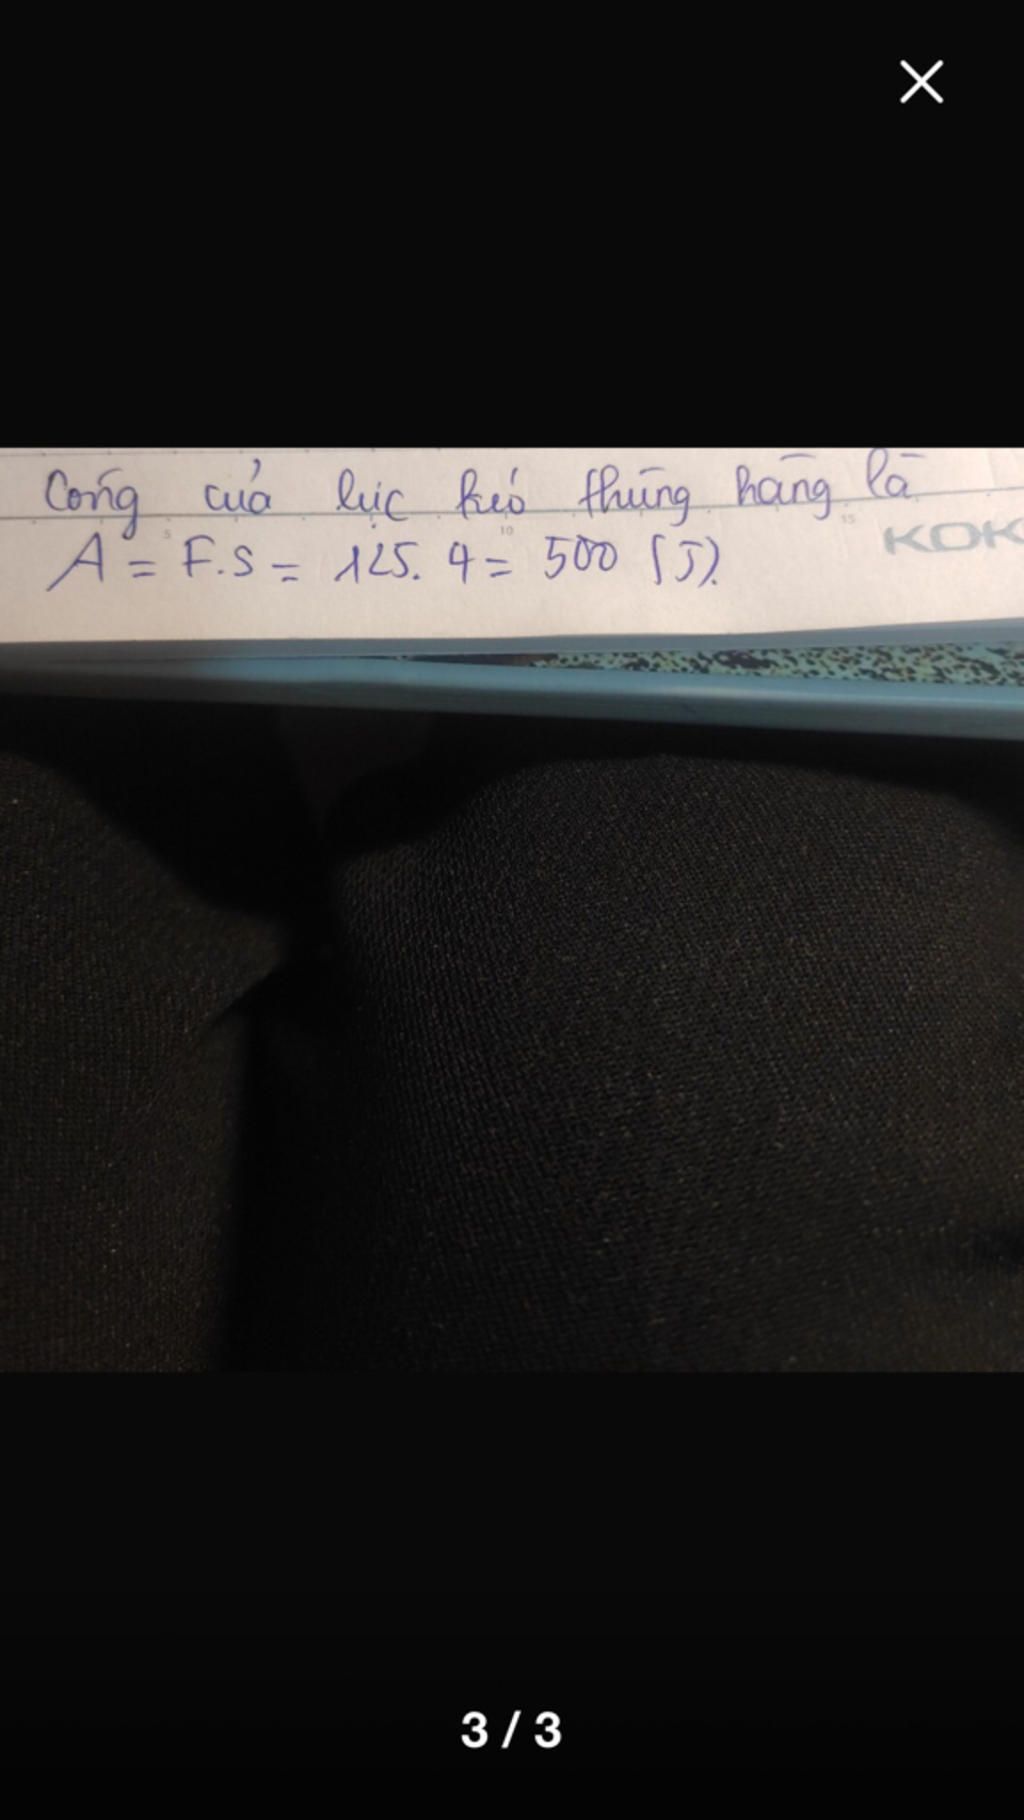 Công của lực kéo thùng hàng là
5 10 15
KOK
A = F.s = 125. 4 = 500 (J).
3 / 3